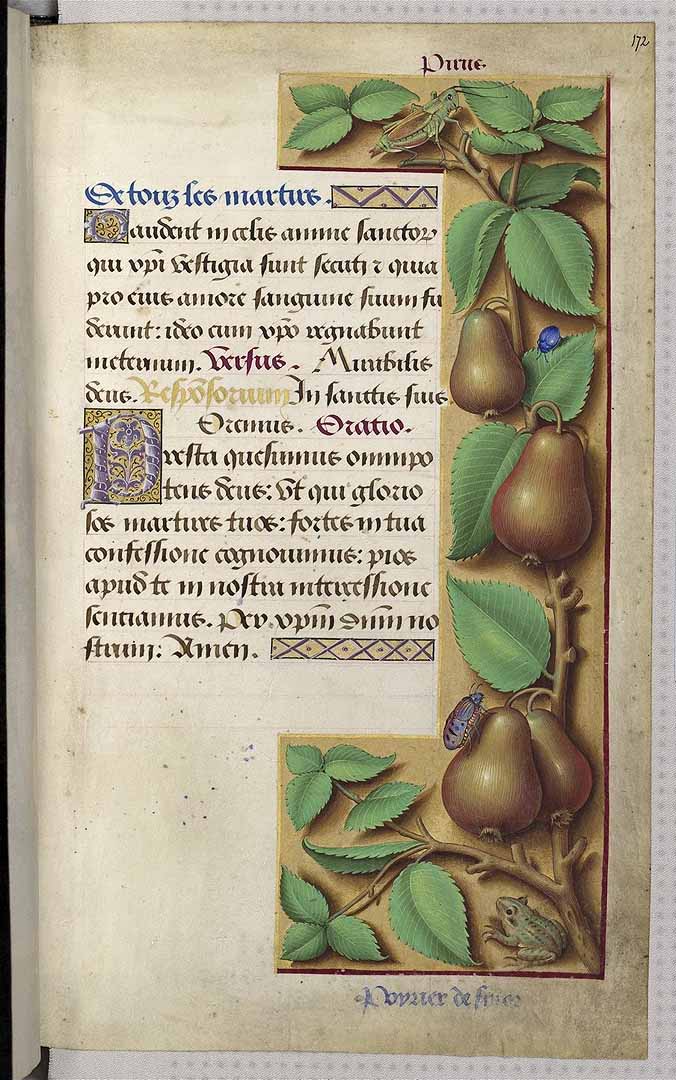 172
Pirus
De tous les martirs.
Gaudent in celis anime sanctoꝝ
qui xp̄i vestigia sunt secuti ⁊ quia
pro eius amore sanguine suum fu
derunt: ideo cum xp̄o regnabunt
ineternum. Versus. Mirabilis
deus. Responsorium In sanctis suis.
Oremus. Oratio.
Presta quesumus omnipo
tens deus: Vt qui glorio
sos martires tuos: fortes in tua
confessione cognouimus: pios
apud te in nostra intercessione
sentiamus. Per. xp̄m dn̄m no
strum: Amen.
Poyrier de